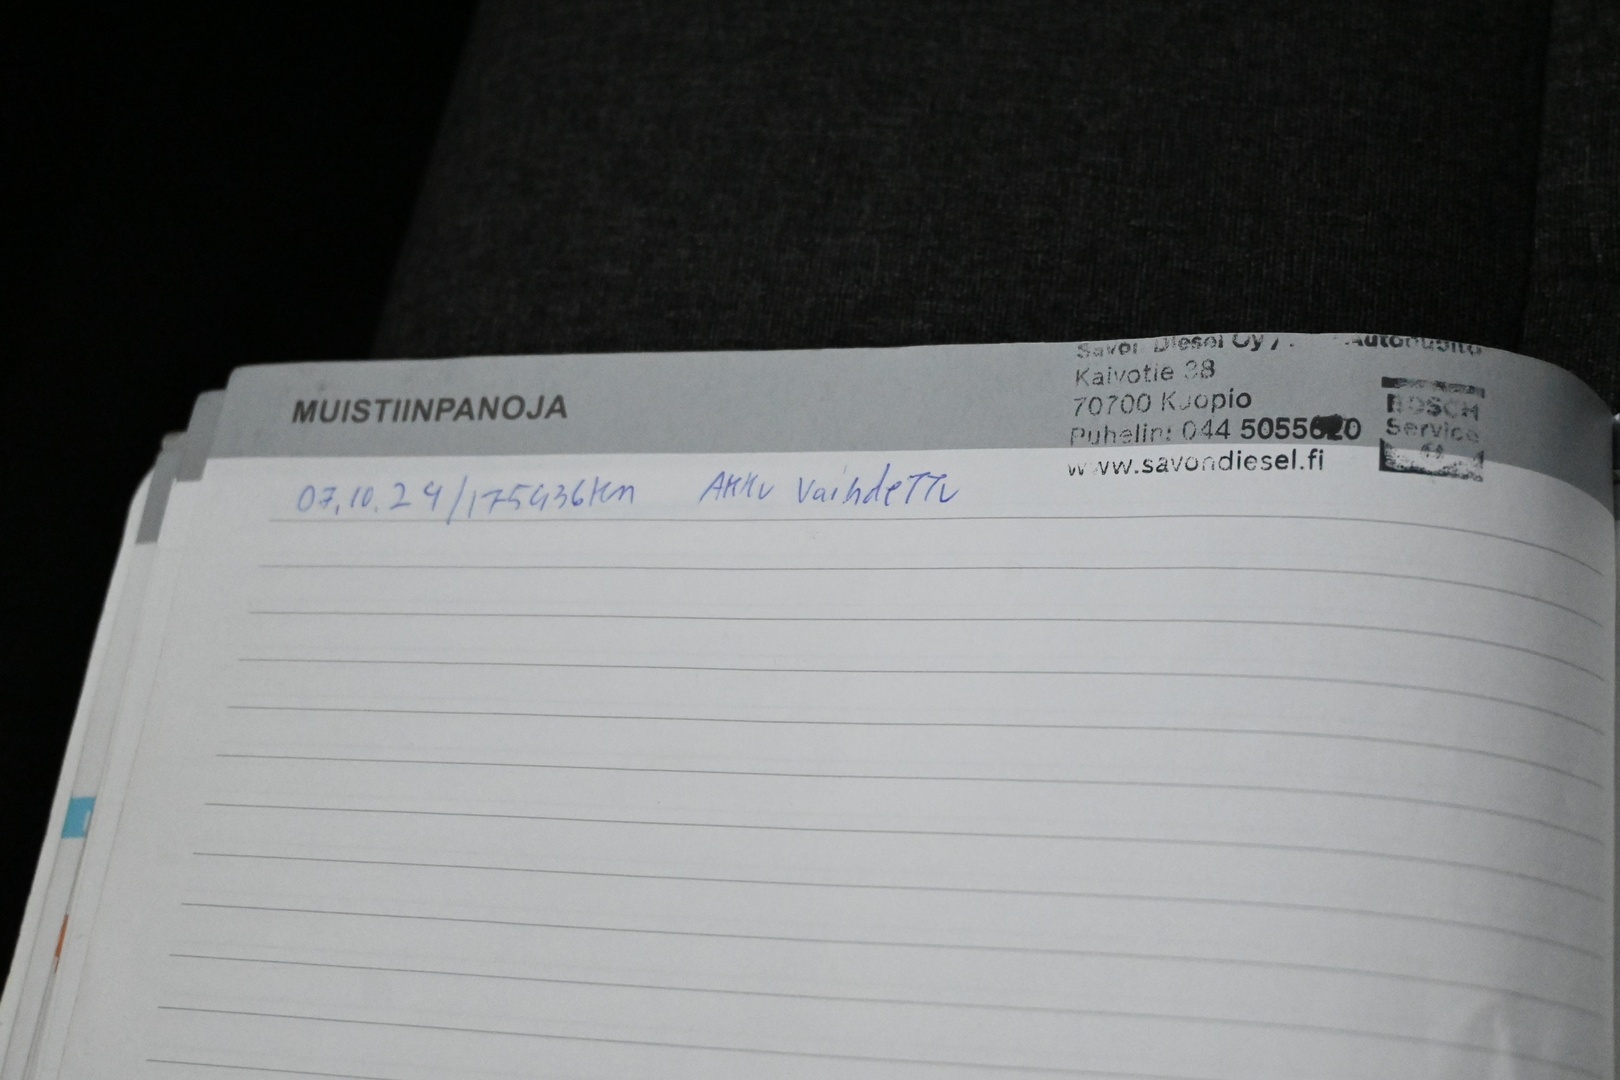 MUISTIINPANOJA
Savon Diesel Oy /
Kaivotie 38
70700 Kuopio
Puhelin: 044
www.savondiesel.fi
BOSCH
Service
07.10.24/175436km Akku vaihdettu